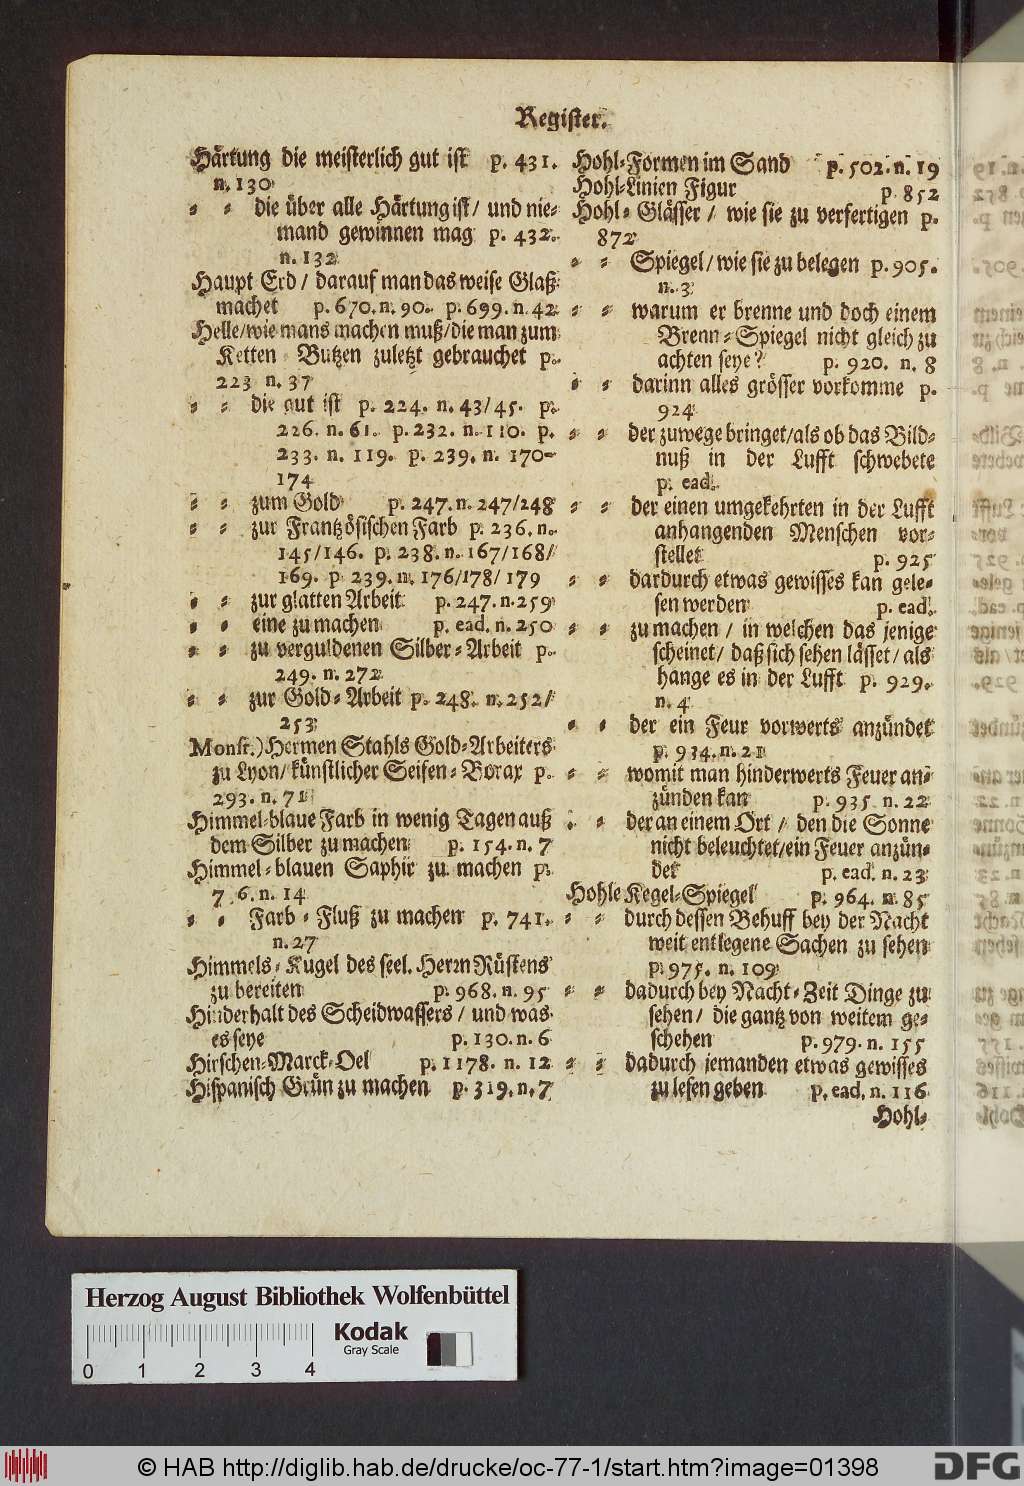 Register.
Härtung die meisterlich gut ist p. 431.
n. 130
= = die über alle Härtung ist/ und nie=
mand gewinnen mag p. 432.
n. 132
Haupt Erd/ darauf man das weise Glaß
machet p. 670. n. 90. p. 699. n. 42
Helle/ wie mans machen muß/ die man zum
Ketten = Butzen zuletzt gebrauchet p.
223 n. 37
= = die gut ist p. 224. n. 43/45. p.
226. n. 61. p. 232. n. 110. p.
233. n. 119. p. 239. n. 170-
174
= = zum Gold p. 247. n. 247/248
= = zur Frantzösischen Farb p. 236. n.
145/146. p. 238. n. 167/168/
169. p 239. n. 176/178/179
= = zur glatten Arbeit p. 247. n. 259
= = eine zu machen p. ead. n. 250
= = zu verguldenen Silber = Arbeit p.
249. n. 272
= = zur Gold = Arbeit p. 248. n. 252/
253
Monsr.) Hermen Stahls Gold=Arbeiters
zu Lyon/ künstlicher Seifen = Borax p.
293. n. 71
Himmel=blaue Farb in wenig Tagen auß
dem Silber zu machen p. 154. n. 7
Himmel = blauen Saphir zu machen p.
7 6. n. 14
= = Farb = Fluß zu machen p. 741.
n. 27
Himmels = Kugel des seel. Herrn Rüstens
zu bereiten p. 968. n. 95
Hinderhalt des Scheidwassers / und was
es seye p. 130. n. 6
Hirschen=Marck=Oel p. 1178. n. 12
Hispanisch Grün zu machen p. 319. n. 7
Hohl=Formen im Sand p. 502. n. 19
Hohl=Linien Figur p. 852
Hohl = Glässer / wie sie zu verfertigen p.
872
= = Spiegel / wie sie zu belegen p. 905.
n. 3
= = warum er brenne und doch einem
Brenn = Spiegel nicht gleich zu
achten seye? p. 920. n. 8
= = darinn alles grösser vorkomme p.
924
= = der zuwege bringet/als ob das Bild=
nuß in der Lufft schwebete
p. ead.
= = der einen umgekehrten in der Lufft
anhangenden Menschen vor=
stellet p. 925
= = dardurch etwas gewisses kan gele=
sen werden p. ead.
= = zu machen / in welchen das jenige
scheinet/ daß sich sehen lässet/ als
hange es in der Lufft p. 929.
n. 4
= = der ein Feur vorwerts anzündet
p. 934. n. 21
= = womit man hinderwerts Feuer an=
zünden kan p. 935 n. 22
= = der an einem Ort / den die Sonne
nicht beleuchtet/ein Feuer anzün=
det p. ead. n. 23
Hohle Kegel=Spiegel p. 964. n. 85
= = durch dessen Behuff bey der Nacht
weit entlegene Sachen zu sehen
p. 975. n. 109
= = dadurch bey Nacht = Zeit Dinge zu
sehen / die gantz von weitem ge=
schehen p. 979. n. 155
= = dadurch jemanden etwas gewisses
zu lesen geben p. ead. n. 116
Hohl=
Herzog August Bibliothek Wolfenbüttel
Kodak
Gray Scale
0 1 2 3 4
© HAB http://diglib.hab.de/drucke/oc-77-1/start.htm?image=01398
DFG